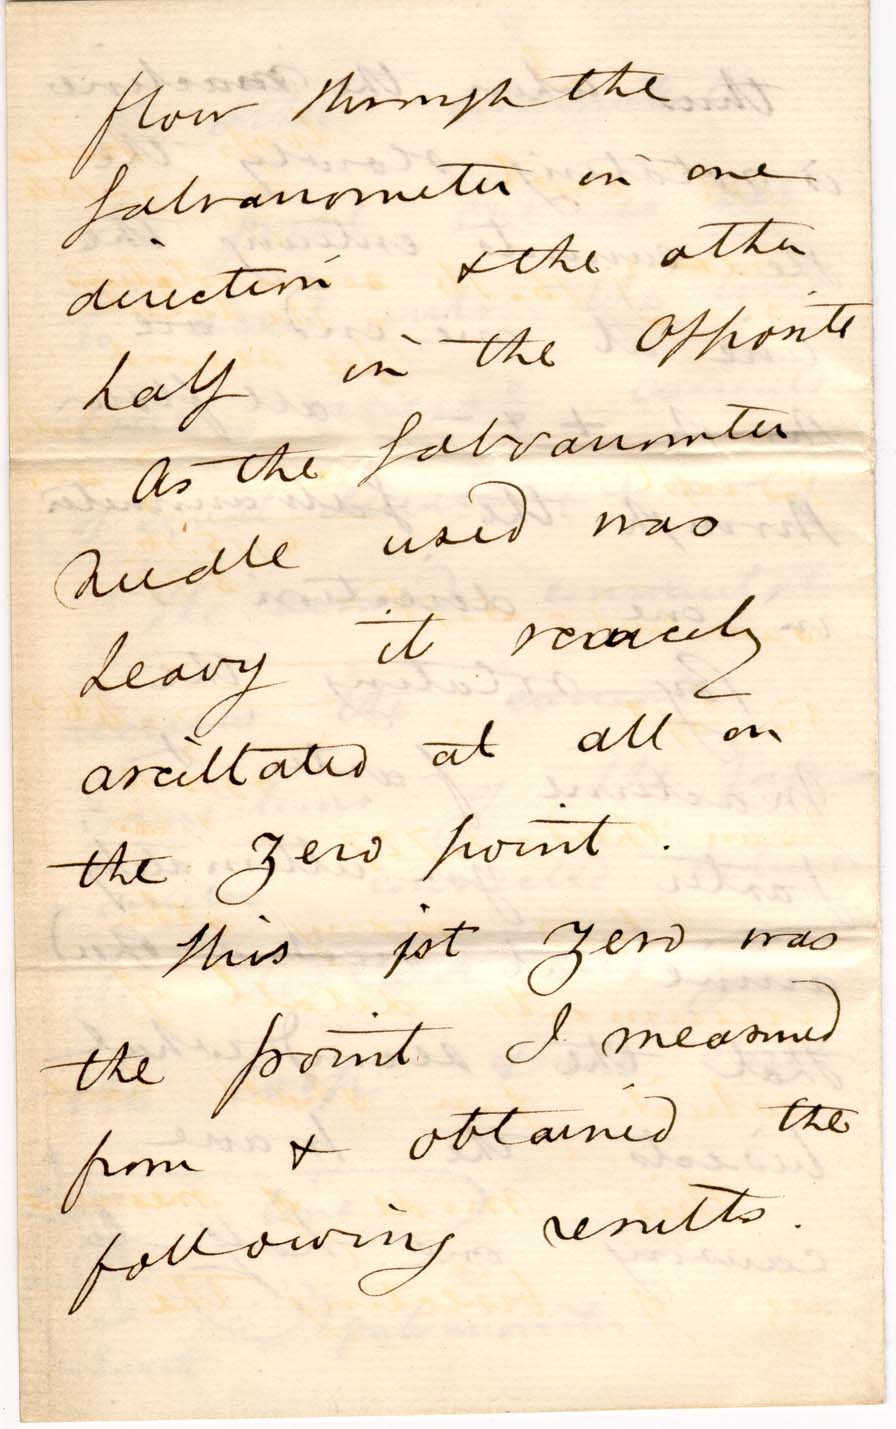 flow through the
Galvanometer in one
direction & the other
half in the opposite
As the Galvanometer
needle used was
heavy it scarcely
oscillated at all on
the zero point.
This pt zero was
the point I measured
from & obtained the
following results.